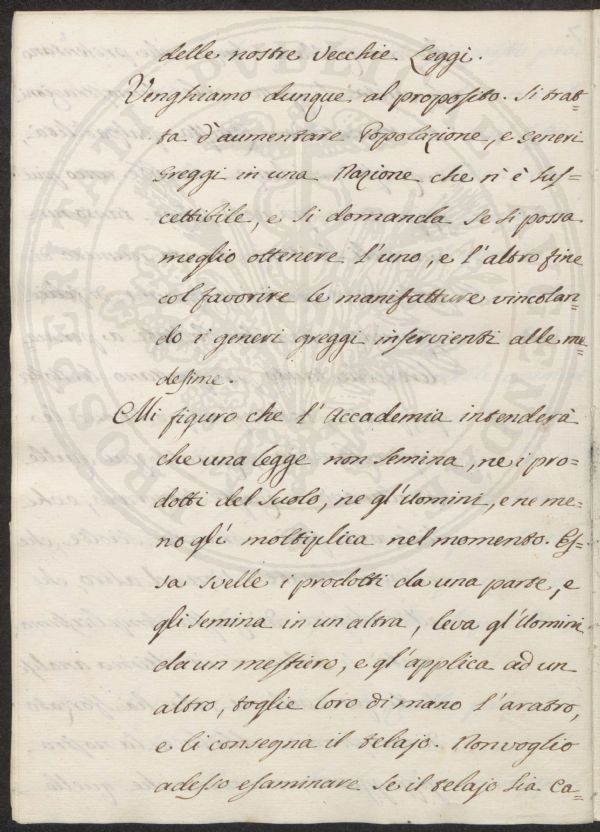 delle nostre vecchie Leggi.
Venghiamo dunque al proposito. Si trat=
ta d'aumentare Popolazione, e generi
greggi in una Nazione che n'è suf=
cettibile, e si domanda se si possa
meglio ottenere l'uno, e l'altro fine
col favorire le manifatture vincolan=
do i generi greggi inservienti alle me=
desime.
Mi figuro che l'Accademia intenderà
che una legge non semina, ne i pro=
dotti del suolo, ne gl'Uomini, e ne me=
no gli moltiplica nel momento. Es=
sa svelle i prodotti da una parte, e
gli semina in un altra, leva gl'Uomini
da un mestiero, e gl'applica ad un
altro, toglie loro di mano l'aratro,
e li consegna il telajo. Non voglio
adesso esaminare se il telajo sia ca=